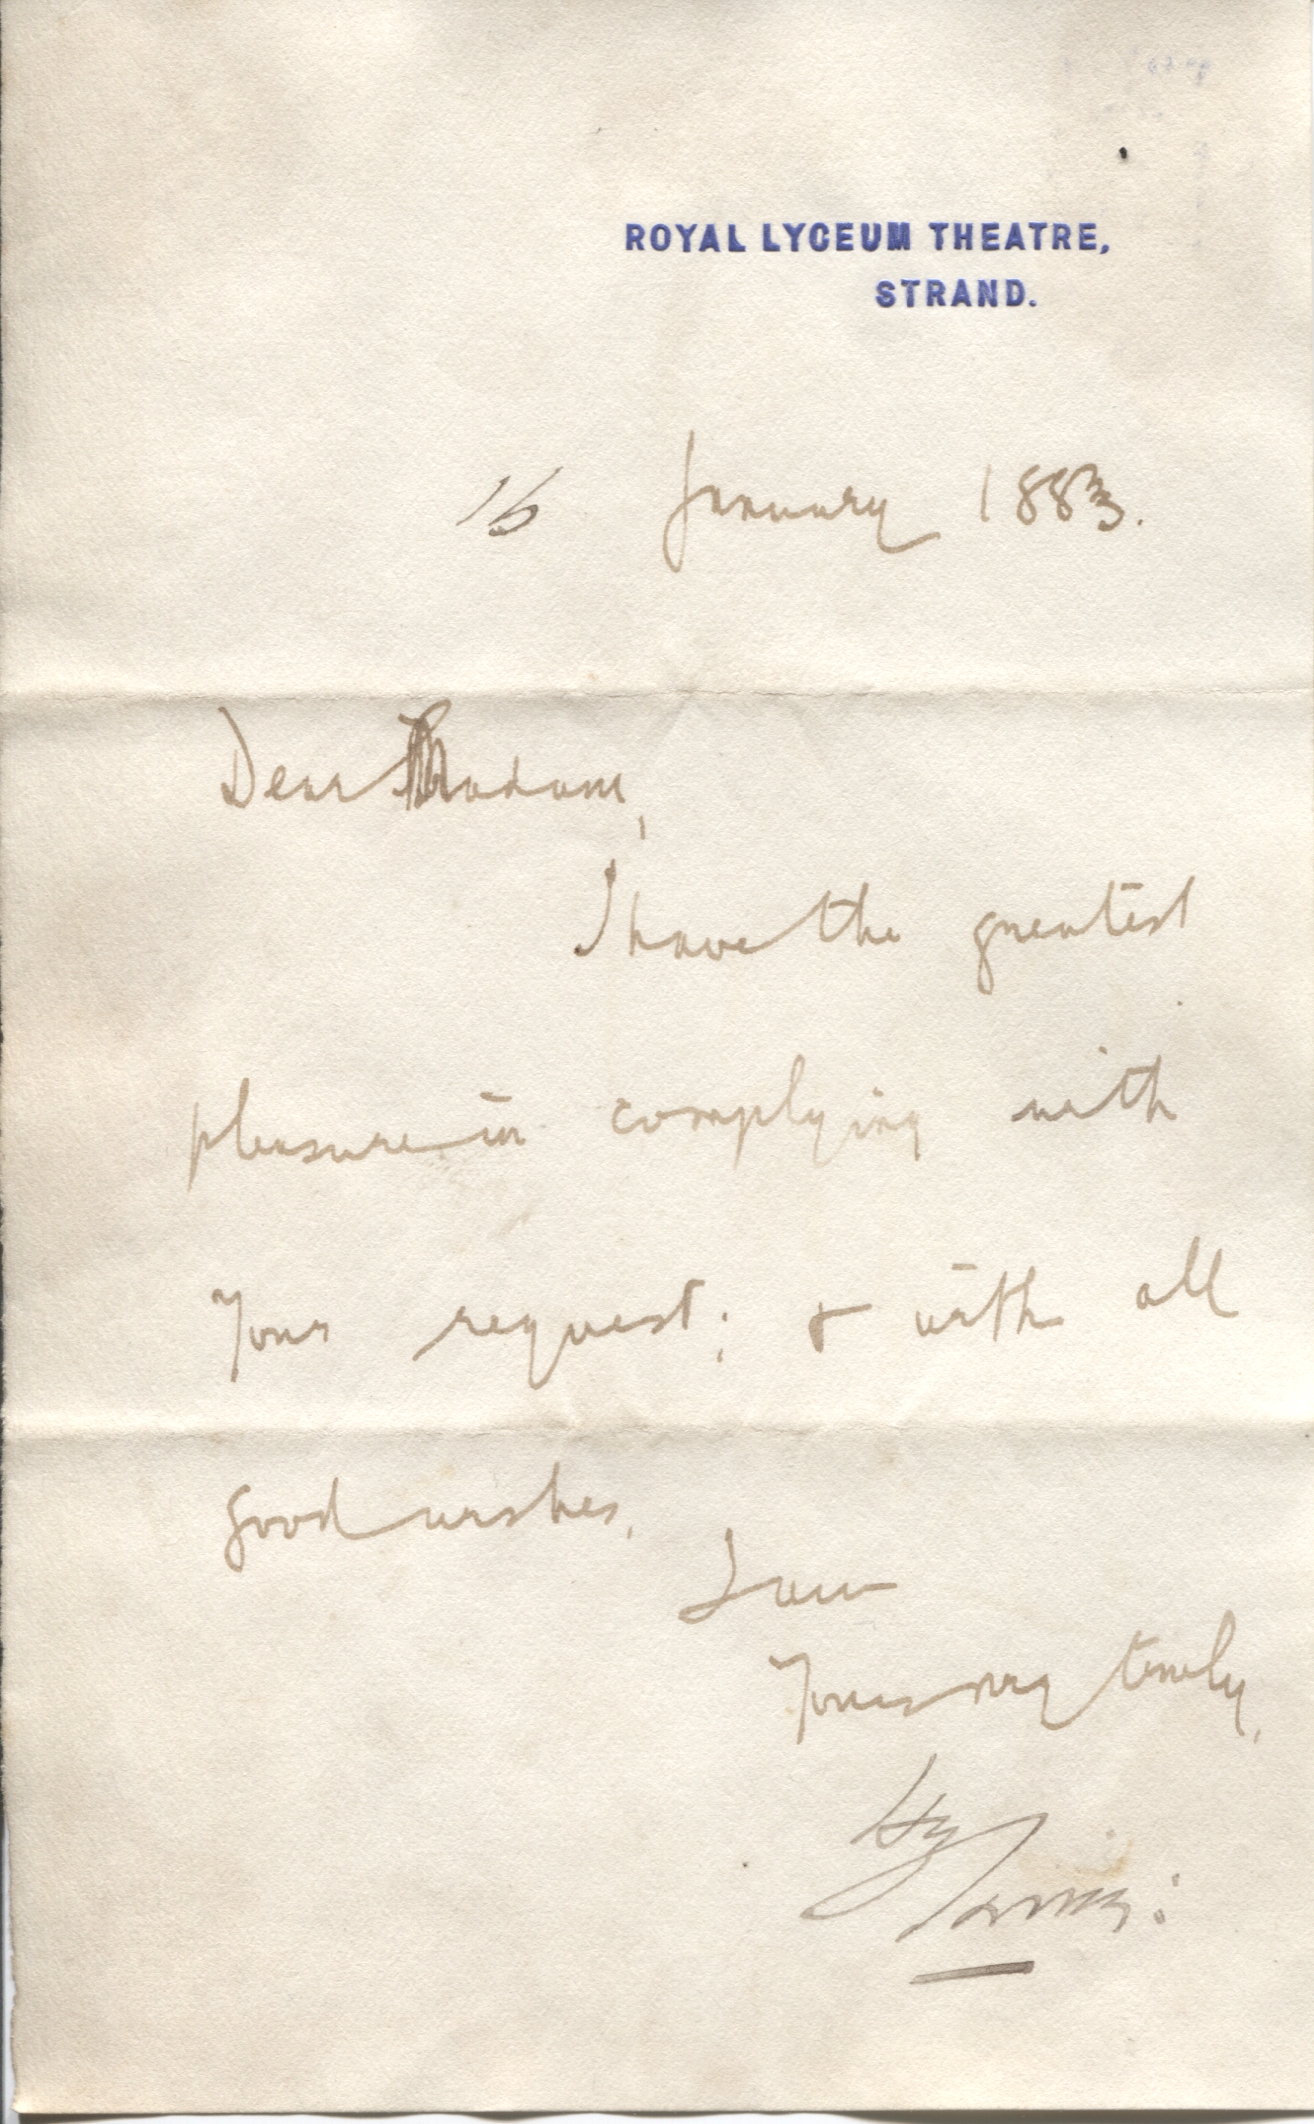 ROYAL LYCEUM THEATRE,
STRAND.
16 January 1883.
Dear Madam,
I have the greatest
pleasure in complying with
your request; & with all
good wishes,
I am
Yours very truly,
Hy Irving: